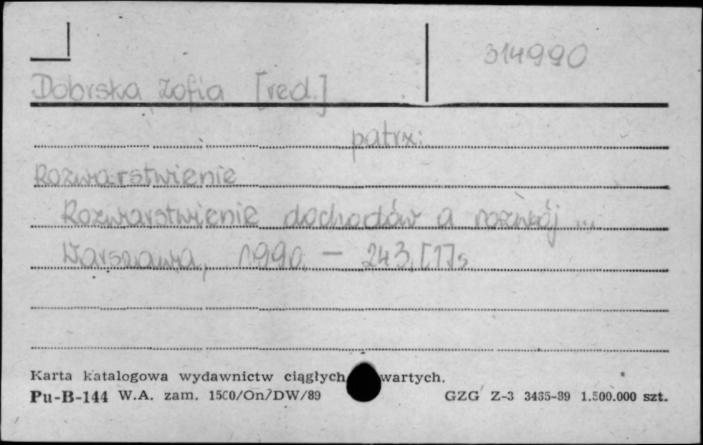 314990
Dobrska Zofia [red.]
patrz:
Rozwarstwienie
Rozwarstwienie dochodów a rozwój ...
Warszawa, 1990. – 243, [1] s
Karta katalogowa wydawnictw ciągłych wartych.
Pu-B-144 W.A. zam. 1500/On/DW/89 GZG Z-3 3435-89 1.500.000 szt.